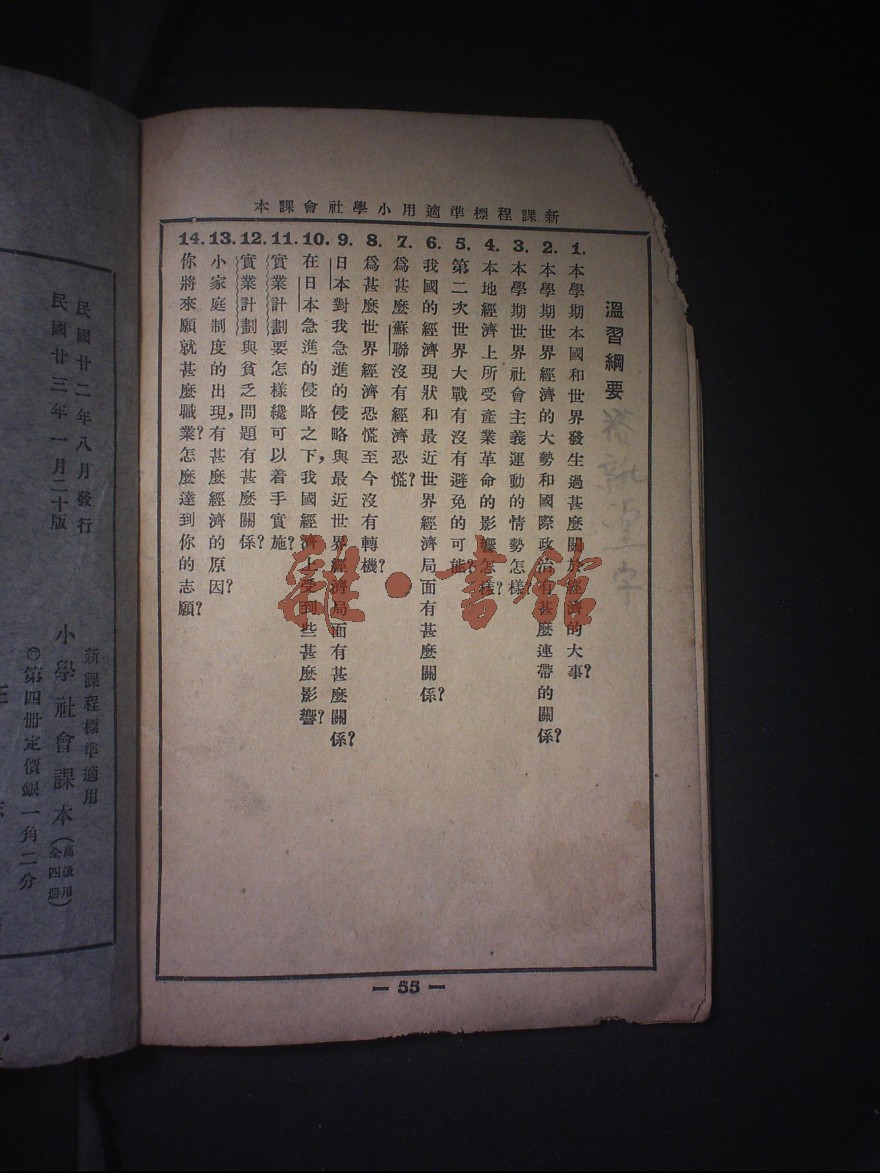 新課程標準適用小學社會課本
溫習綱要
1. 本學期本國和世界發生過甚麼關於經濟的大事？
2. 本學期世界經濟的大勢和國際政治有甚麼連帶的關係？
3. 本學期世界社會主義運動的情勢怎樣？
4. 本地經濟上所受產業革命的影響怎樣？
5. 第二次世界大戰有沒有避免的可能？
6. 我國的經濟現狀和最近世界經濟局面有甚麼關係？
7. 爲甚麼蘇聯沒有經濟恐慌？
8. 爲甚麼世界經濟恐慌至今沒有轉機？
9. 日本對我急進的侵略與最近世界經濟局面有甚麼關係？
10. 在日本急進的侵略之下，我國經濟上受到些甚麼影響？
11. 實業計劃要怎樣纔可以着手實施？
12. 實業計劃與貧乏問題有甚麼關係？
13. 小家庭制度的出現，有甚麼經濟的原因？
14. 你將來願就甚麼職業？怎麼達到你的志願？
— 55 —
雜·書館
民國廿二年八月發行
民國廿三年一月二十版
新課程標準適用
小學社會課本（高級用全四册）
第四册定價銀一角二分